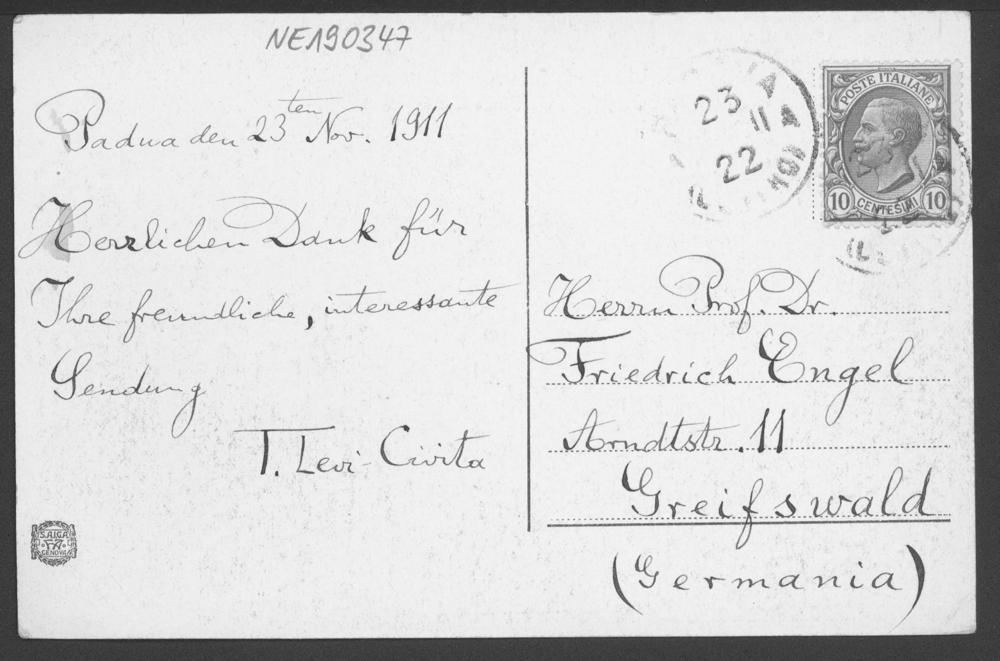 NE190347
Padua den 23ten Nov. 1911
Herzlichen Dank für
Ihre freundliche, interessante
Sendung
T. Levi-Civita
S.A.I.G.A.
GENOVA
23
11
22
POSTE ITALIANE
10 CENTESIMI 10
Herrn Prof. Dr.
Friedrich Engel
Arndtstr. 11
Greifswald
(Germania)